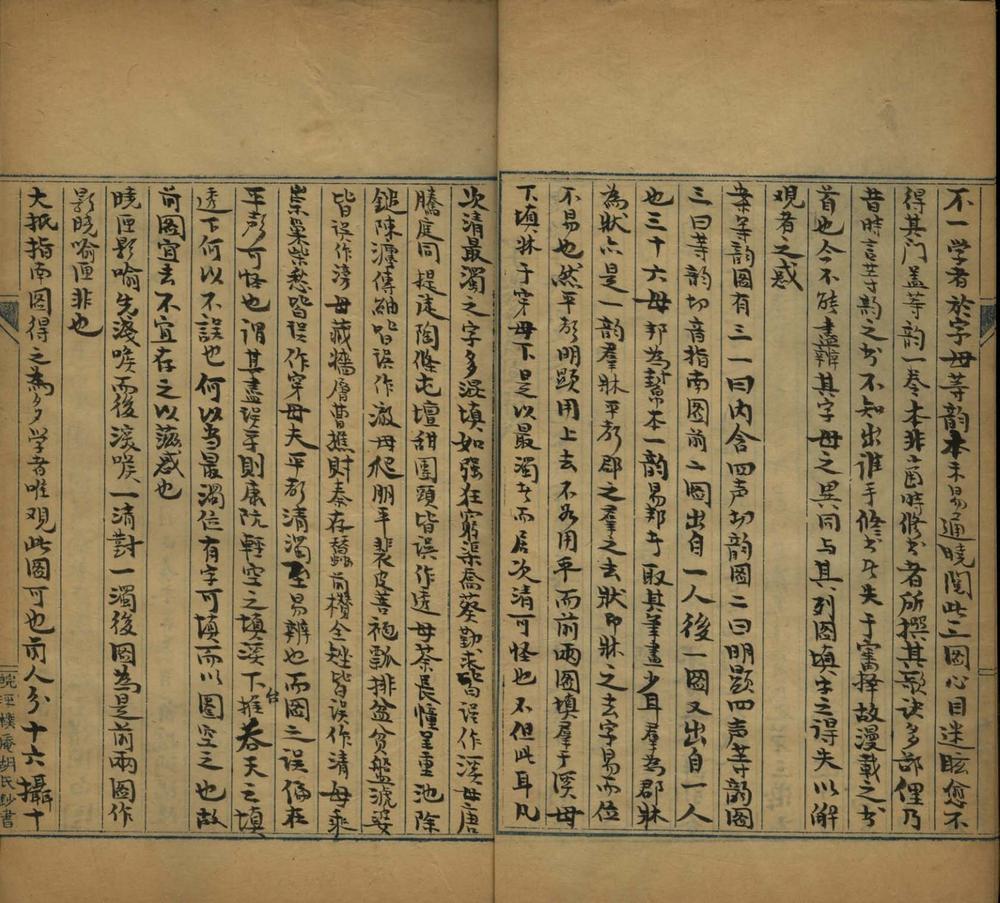 不一学者於字母等韵本未易通晓閲此三圖心目迷眩愈不
得其门盖等韵一卷本非一時修书者所撰其歌诀多部俚乃
昔時言等韵之书不知出谁手修书者失于審择故漫載之书
首也今不能盡辨其字母之異同与其列圖填字之得失以解
观者之惑
案等韵圖有三一曰内含四声切韵圖二曰明顕四声等韵圖
三曰等韵切音指南圖前二圖出自一人後一圖又出自一人
也三十六母邦為幫本一韵易邦者取其筆畫少耳羣為郡牀
為狀亦是一韵羣牀平声郡之羣之去狀即牀之去字易而位
不易也然平声明顕用上去不若用平而前兩圖填羣于溪母
下填牀于穿母下是以最濁者而居次清可怪也不但此耳凡
次清最濁之字多混填如强狂窮渠喬葵勤求皆误作溪母唐
騰庭同提徒陶條屯壇甜團頭皆误作透母茶長幢呈重池除
鎚陳瀍傳紬皆误作澈母爬朋平裴皮菩袍瓢排盆贫盤淲婆
皆误作滂母藏墙層曹樵財秦存蠶前欑全矬皆误作清母乘
崇巢柴愁皆误作穿母夫平声清濁至易辨也而圖之误偏在
平声可怪也謂其盡误乎則康阬輕空之填溪下推台吞天之填
透下何以不誤也何以当最濁位有字可填而以圈空之也故
前圖宜去不宜存之以滋惑也
晓匣影喻先淺喉而後深喉一清對一濁後圖為是前兩圖作
影晓喻匣非也
大抵指南圖得之為多学者唯观此圖可也前人分十六攝十
皖涇樸庵胡氏鈔書